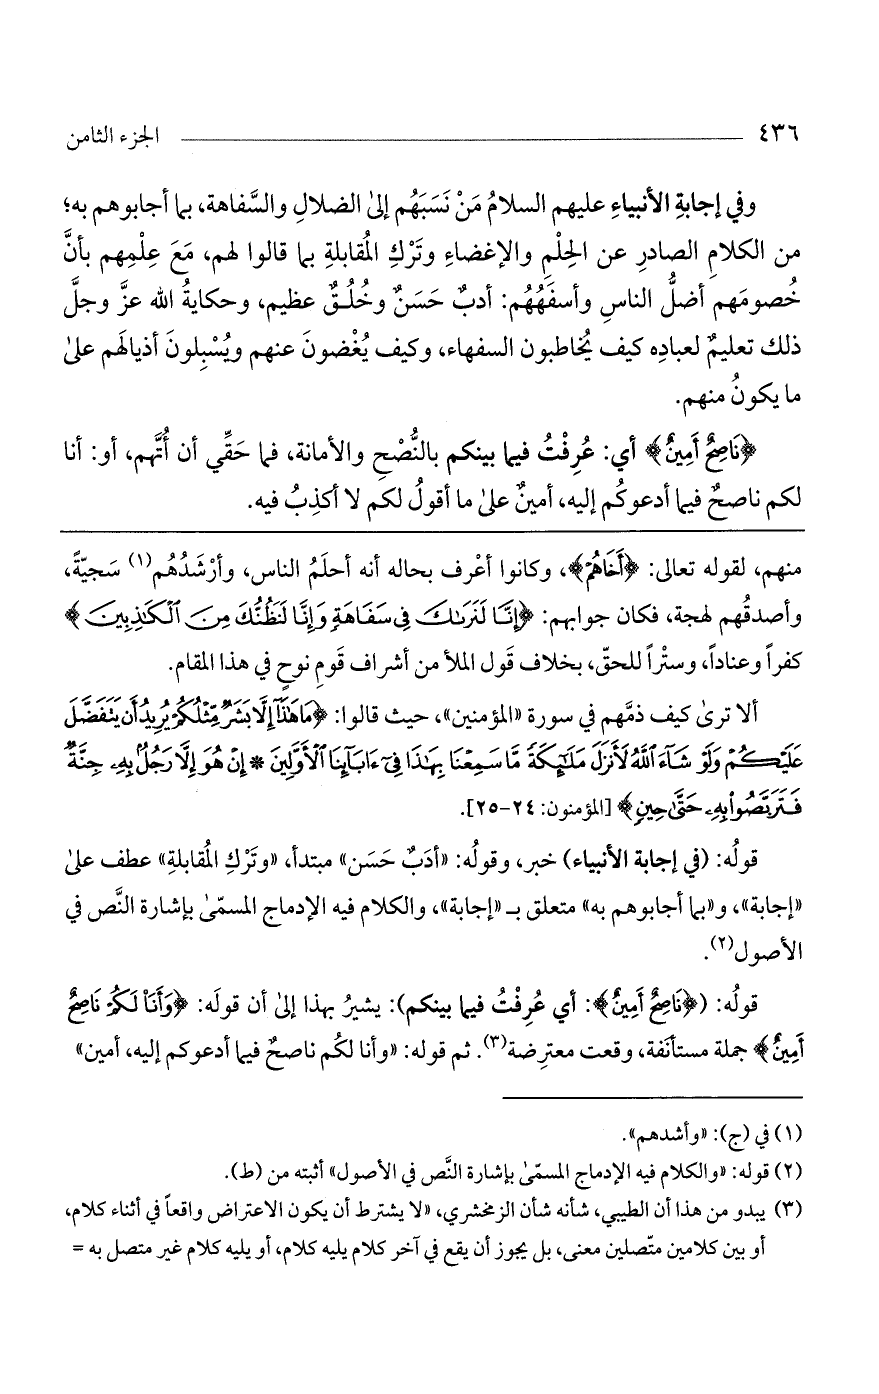 ٤٣٦ الجزء الثامن
وفي إجابةِ الأنبياءِ عليهم السلامُ مَنْ نَسَبَهُم إلىٰ الضلالِ والسَّفاهة، بما أجابوهم به؛
من الكلامِ الصادرِ عن الحِلْمِ والإغضاءِ وتَرْكِ المُقابلةِ بما قالوا لهم، مَعَ عِلْمِهم بأنَّ
خُصومَهم أضلُّ الناسِ وأسفَهُهُم: أدبٌ حَسَنٌ وخُلُقٌ عظيم، وحكايةُ الله عزَّ وجلَّ
ذلك تعليمٌ لعبادِه كيف يُخاطبون السفهاء، وكيف يُغْضونَ عنهم ويُسْبِلونَ أذيالَهم علىٰ
ما يكونُ منهم.
﴿نَاصِحٌ أَمِينٌ﴾ أي: عُرِفْتُ فيما بينكم بالنُّصْحِ والأمانة، فما حَقِّي أن أُتَّهم، أو: أنا
لكم ناصحٌ فيما أدعوكُم إليه، أمينٌ علىٰ ما أقولُ لكم لا أكذِبُ فيه.
منهم، لقوله تعالى: ﴿أَخَاهُمْ﴾، وكانوا أعْرف بحاله أنه أحلَمُ الناس، وأرْشَدُهُم(١) سَجيّةً،
وأصدقُهم لهجة، فكان جوابهم: ﴿إِنَّا لَنَرَىٰكَ فِي سَفَاهَةٍ وَإِنَّا لَنَظُنُّكَ مِنَ ٱلْكَٰذِبِينَ﴾
كفراً وعناداً، وستْراً للحقّ، بخلاف قَول الملأ من أشراف قَومِ نوحٍ في هذا المقام.
ألا ترىٰ كيف ذمَّهم في سورة «المؤمنين»، حيث قالوا: ﴿مَا هَٰذَآ إِلَّا بَشَرٌ مِّثْلُكُمْ يُرِيدُ أَن يَتَفَضَّلَ
عَلَيْكُمْ وَلَوْ شَآءَ ٱللَّهُ لَأَنزَلَ مَلَٰٓئِكَةً مَّا سَمِعْنَا بِهَٰذَا فِىٓ ءَابَآئِنَا ٱلْأَوَّلِينَ * إِنْ هُوَ إِلَّا رَجُلٌۢ بِهِۦ جِنَّةٌ
فَتَرَبَّصُوا۟ بِهِۦ حَتَّىٰ حِينٍ﴾ [المؤمنون: ٢٤-٢٥].
قولُه: (في إجابة الأنبياء) خبر، وقولُه: «أدَبٌ حَسَن» مبتدأ، «وتَرْكِ المُقابلةِ» عطف علىٰ
«إجابة»، و«بما أجابوهم به» متعلق بـ «إجابة»، والكلام فيه الإدماج المسمّىٰ بإشارة النَّص في
الأصول(٢).
قولُه: (﴿نَاصِحٌ أَمِينٌ﴾: أي عُرِفْتُ فيما بينكم): يشيرُ بهذا إلىٰ أن قولَه: ﴿وَأَنَا۠ لَكُمْ نَاصِحٌ
أَمِينٌ﴾ جملة مستأنَفة، وقعت معترِضة(٣). ثم قوله: «وأنا لكُم ناصحٌ فيما أدعوكم إليه، أمين»
(١) في (ج): «وأشدهم».
(٢) قوله: «والكلام فيه الإدماج المسمّىٰ بإشارة النَّص في الأصول» أثبته من (ط).
(٣) يبدو من هذا أن الطيبي، شأنه شأن الزمخشري، «لا يشترط أن يكون الاعتراض واقعاً في أثناء كلام،
أو بين كلامين متّصلين معنى، بل يجوز أن يقع في آخر كلام يليه كلام، أو يليه كلام غير متصل به =